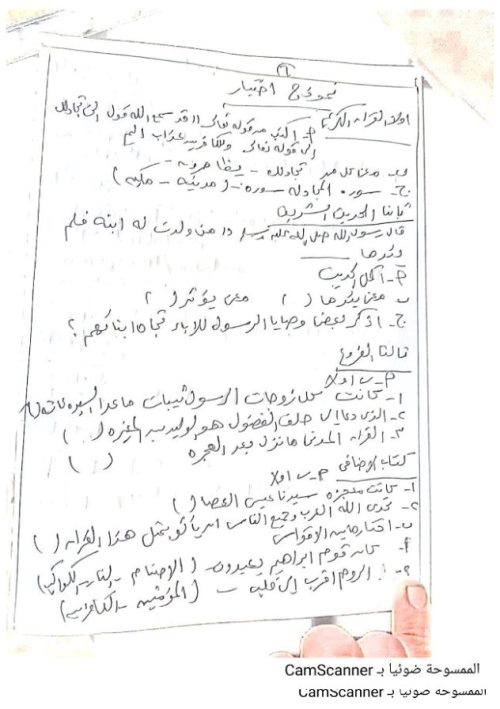 ٦
نموذج اختبار
اولا القران الكريم
أ- اكتب من قوله تعالى (( قد سمع الله قول التى تجادلك
الى قوله تعالى وللكافرين عذاب اليم
ب- معنى كل من تجادلك - يظاهرون -
ج- سورة المجادلة سورة - ( مدنيه - مكيه )
ثانيا الحديث الشريف
قال رسول الله صلى الله عليه وسلم (( من ولدت له ابنه فلم
يئدها
أ- اكمل الحديث
ب- معنى يئدها ( ) معنى يؤثر ( )
ج- اذكر بعض وصايا الرسول للاباء تجاه ابنائهم ؟
ثالثا الفروع
١- كانت كل زوجات الرسول ثيبات ماعدا السيدة
٢- الذى دعا الى حلف الفضول هو الوليد بن المغيره ( )
٣- القران المدنى ما نزل بعد الهجره ( )
كتاب الاضافى
١- كانت معجزه سيدنا عيسى العصا ( )
٢- تحدى الله العرب وجميع الناس ان يأتو بمثل هذا القران ( )
ب- اختار مابين الاقواس
١- كان قوم ابراهيم يعبدون - ( الاصنام - النار - الكواكب )
٢- الروم اقرب الى قلب - ( المؤمنين - الكافرين )
الممسوحة ضوئيا بـ CamScanner
الممسوحة ضوئيا بـ CamScanner